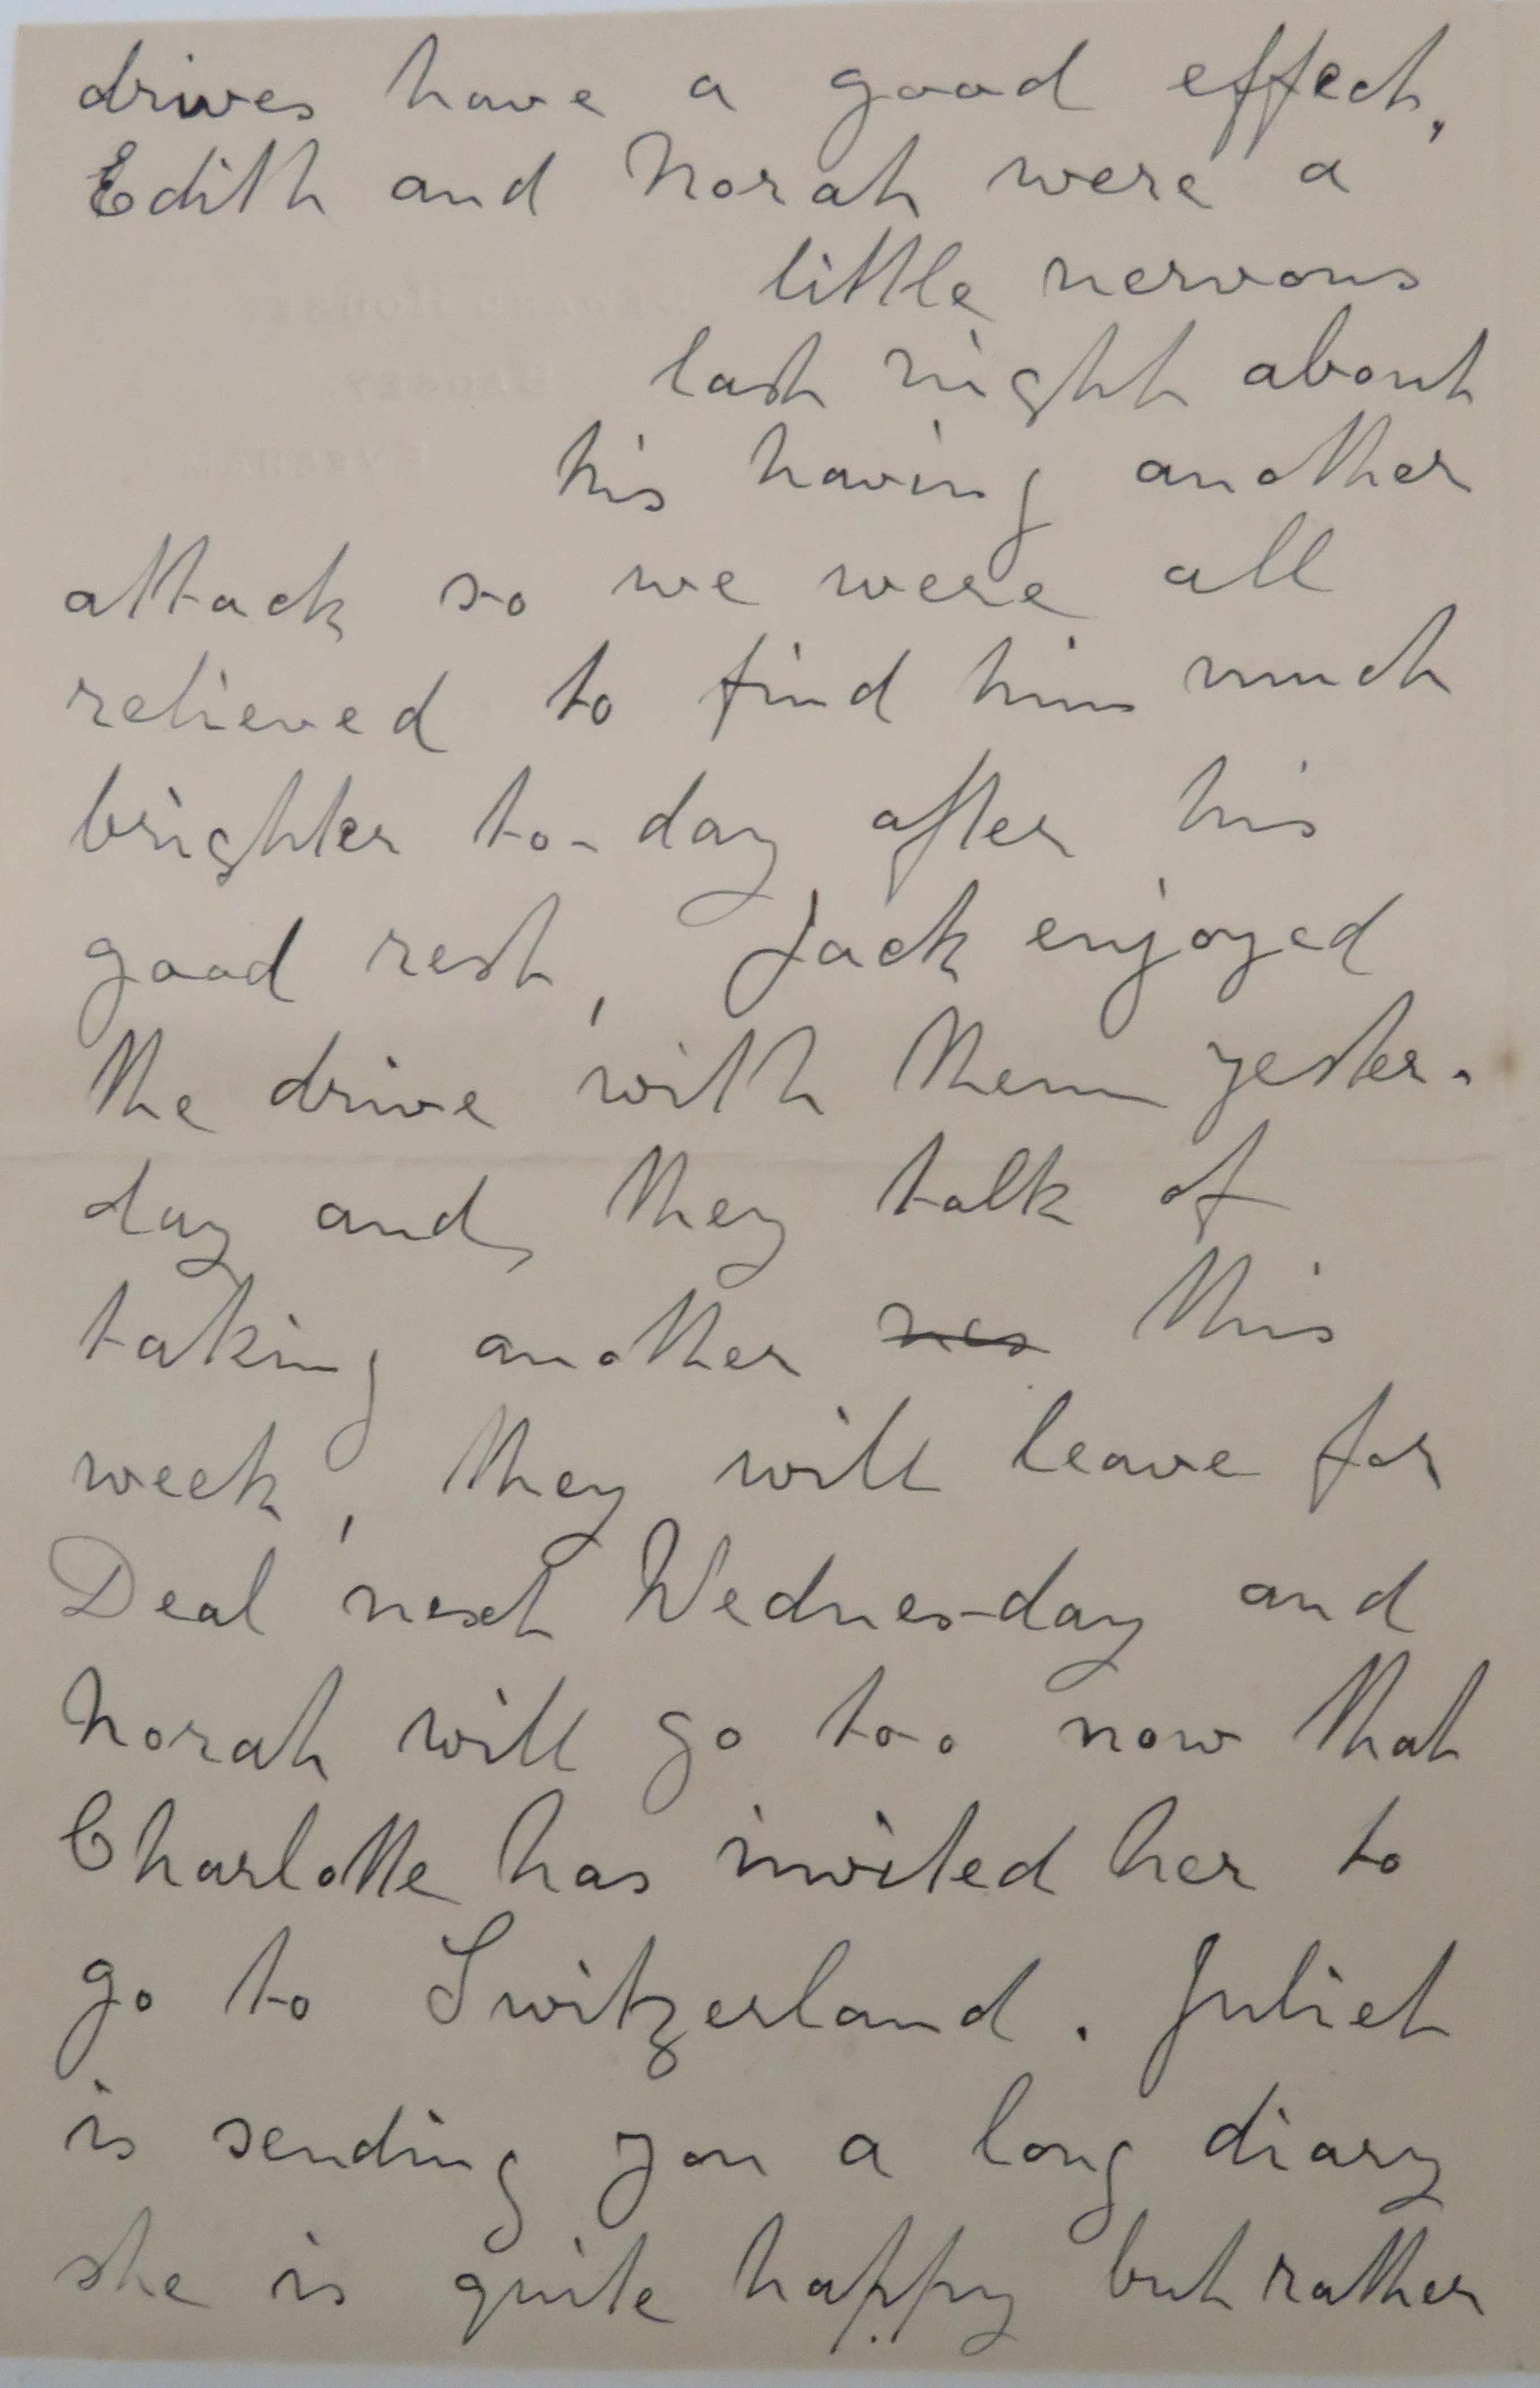 drives have a good effect,
Edith and Norah were a
little nervous
last night about
his having another
attack so we were all
relieved to find him much
brighter to-day after his
good rest, Jack enjoyed
the drive with them yester-
day and they talk of
taking another nex this
week, they will leave for
Deal next Wednesday and
Norah will go too now that
Charlotte has invited her to
go to Switzerland. Juliet
is sending you a long diary
she is quite happy but rather